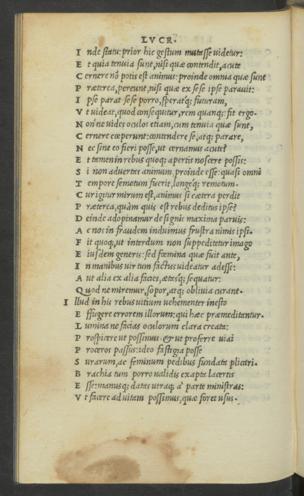 LVCR.
I nde statu: prior hic gestum mutasse videtur:
E t quia tenuia sunt, nisi quæ contendit, acute
C ernere nõ potis est animus: proinde omnia quæ sunt
P ræterea, pereunt, nisi quæ ex se se ipse parauit:
I pse parat sese porro, speratq; futurum,
V t videat, quod consequitur, rem quanq; fit ergo.
N on ne vides oculos etiam, cum tenuia quæ sunt,
C ernere cœperunt: contendere se, atq; parare,
N ec sine eo fieri posse, ut cernamus acute?
E t tamen in rebus quoq; apertis noscere possis:
S i non aduertas animum, proinde esse: quasi omni
T empore semotum fuerit, longeq; remotum.
C ur igitur mirum est, animus si cætera perdit
P ræterea, quàm quis est rebus deditus ipse?
D einde adopinamur de signis maxima paruis:
A c nos in fraudem induimus frustra nimis ipsi.
F it quoq, ut interdum non suppeditetur imago
E iusdem generis: sed fœmina quæ fuit ante,
I n manibus vir tum factus videatur adesse:
A ut alia ex alia facies, ætasq; sequatur:
Q uod ne miremur, sopor, atq; obliuia curant.
I llud in his rebus uitium uehementer inesto
E ffugere errorem illorum: qui hæc præmeditentur.
L umina ne facias oculorum clara creata:
P rospicere ut possimus: & ut proferre uiai
P roceros passus: ideo fastigia posse
S urarum, ac feminum pedibus fundata plicari.
B rachia tum porro ualidis ex apta lacertis
E sse: manusq; datas utraq; a' parte ministras:
V t facere ad uitam possimus, quæ foret usus.